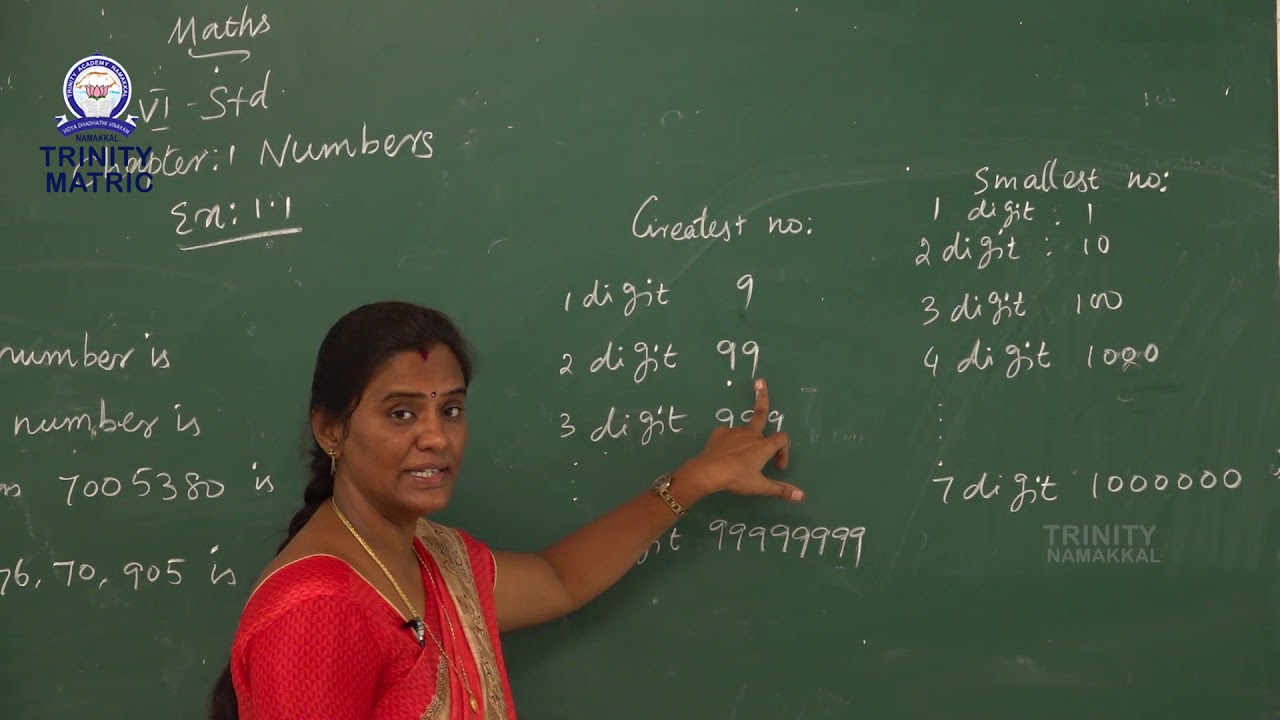 Maths
VI - Std
Chapter: 1 Numbers
Ex: 1.1
TRINITY ACADEMY NAMAKKAL
VIDYA DHADHATHI VINAYAM
NAMAKKAL
TRINITY
MATRIC
number is
number is
7005380 is
76, 70, 905 is
Greatest no:
1 digit 9
2 digit 99
3 digit 999
99999999
Smallest no:
1 digit : 1
2 digit : 10
3 digit 100
4 digit 1000
7 digit 1000000
TRINITY
NAMAKKAL